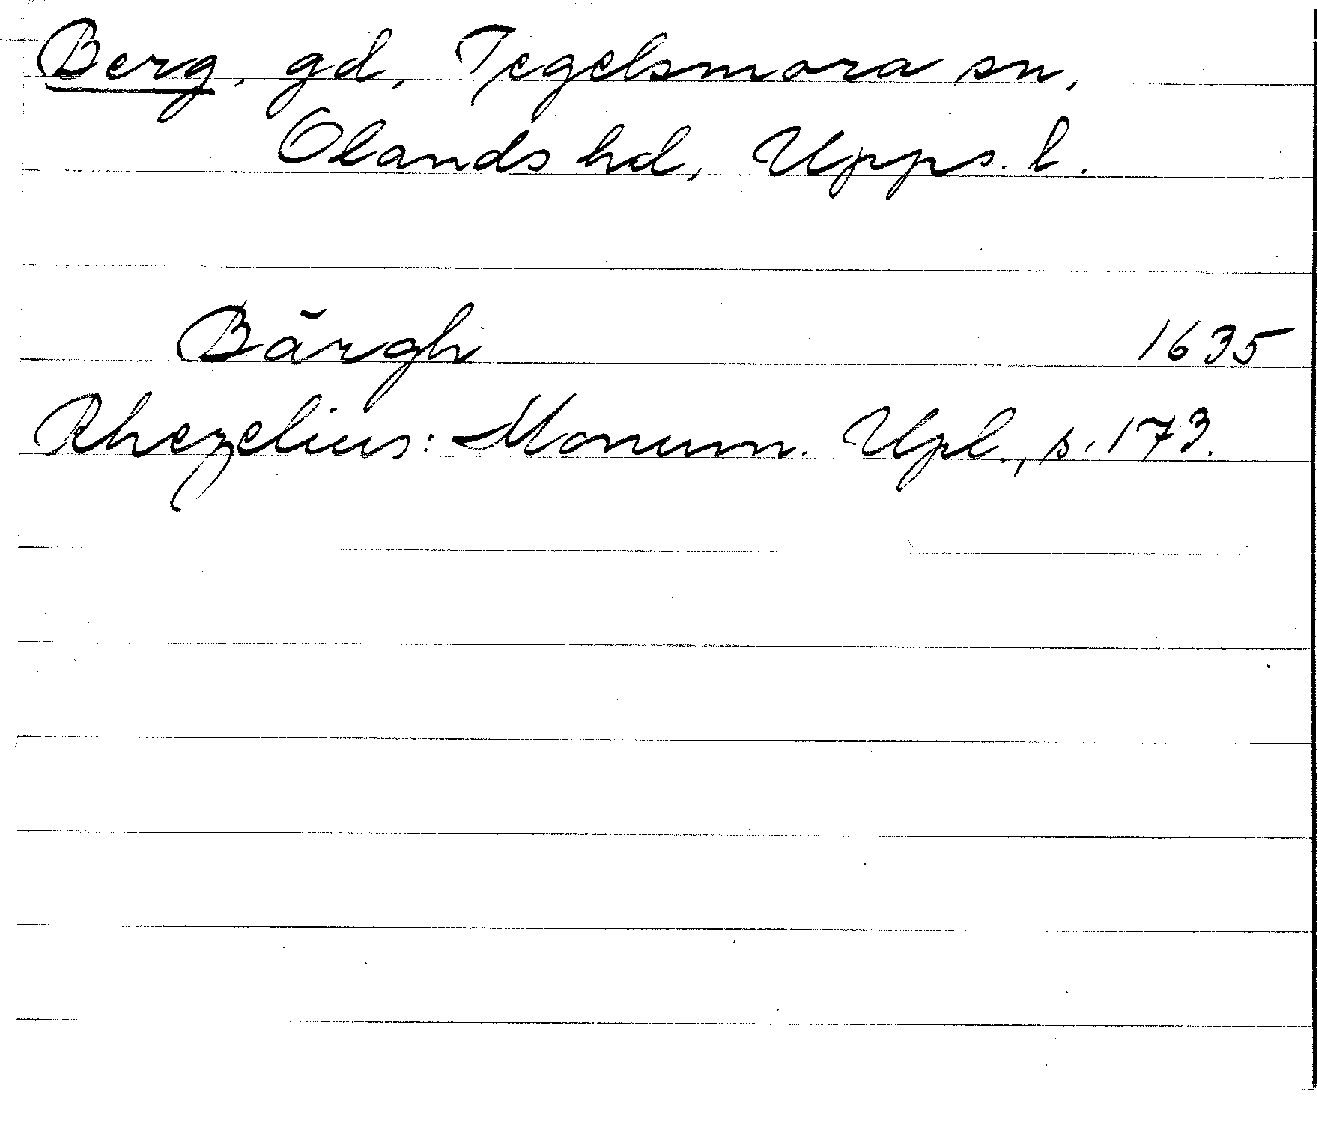 Berg, gd, Tegelsmora sn,
Olands hd, Upps. l.
Bärgh 1635
Rhezelius: Monum. Upl., s. 173.